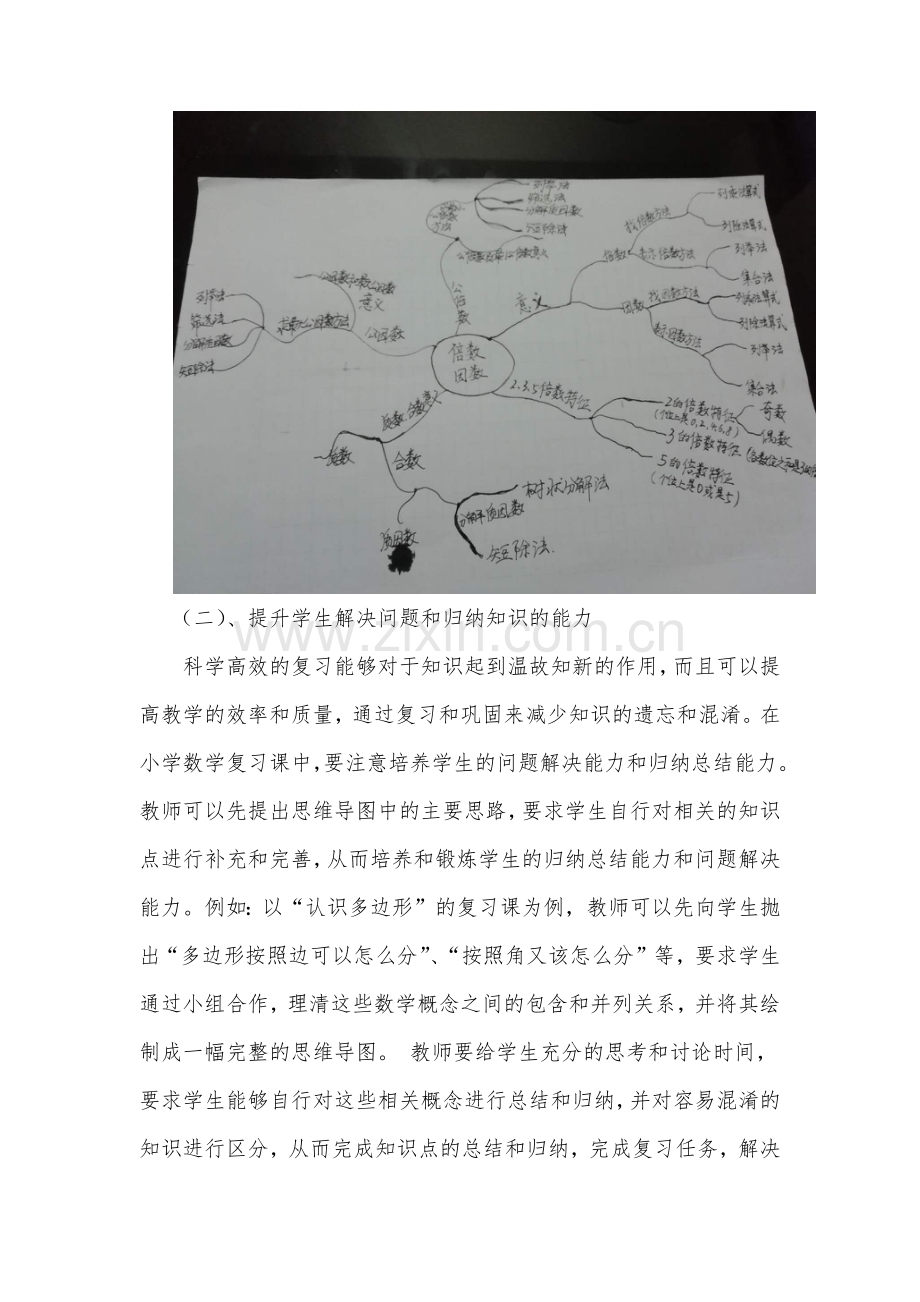 列举法
筛选法
分解质因数
短除法
公倍数
意义
倍数
找倍数方法
列乘法算式
列除法算式
表示倍数方法
列举法
集合法
因数
找因数方法
列乘法算式
列除法算式
表示因数方法
列举法
集合法
公因数和最大公因数
意义
公因数
求最大公因数方法
列举法
筛选法
分解质因数
短除法
倍数
因数
2.3.5倍数特征
2的倍数特征
(个位上是0,2,4,6,8)
奇数
偶数
3的倍数特征
5的倍数特征
(个位上是0或是5)
质数
合数
质因数
分解质因数
树状分解法
短除法
(二)、提升学生解决问题和归纳知识的能力
科学高效的复习能够对于知识起到温故知新的作用,而且可以提
高教学的效率和质量,通过复习和巩固来减少知识的遗忘和混淆。在
小学数学复习课中,要注意培养学生的问题解决能力和归纳总结能力。
教师可以先提出思维导图中的主要思路,要求学生自行对相关的知识
点进行补充和完善,从而培养和锻炼学生的归纳总结能力和问题解决
能力。例如:以“认识多边形”的复习课为例,教师可以先向学生抛
出“多边形按照边可以怎么分”、“按照角又该怎么分”等,要求学生
通过小组合作,理清这些数学概念之间的包含和并列关系,并将其绘
制成一幅完整的思维导图。 教师要给学生充分的思考和讨论时间,
要求学生能够自行对这些相关概念进行总结和归纳,并对容易混淆的
知识进行区分,从而完成知识点的总结和归纳,完成复习任务,解决
www.zixin.com.cn